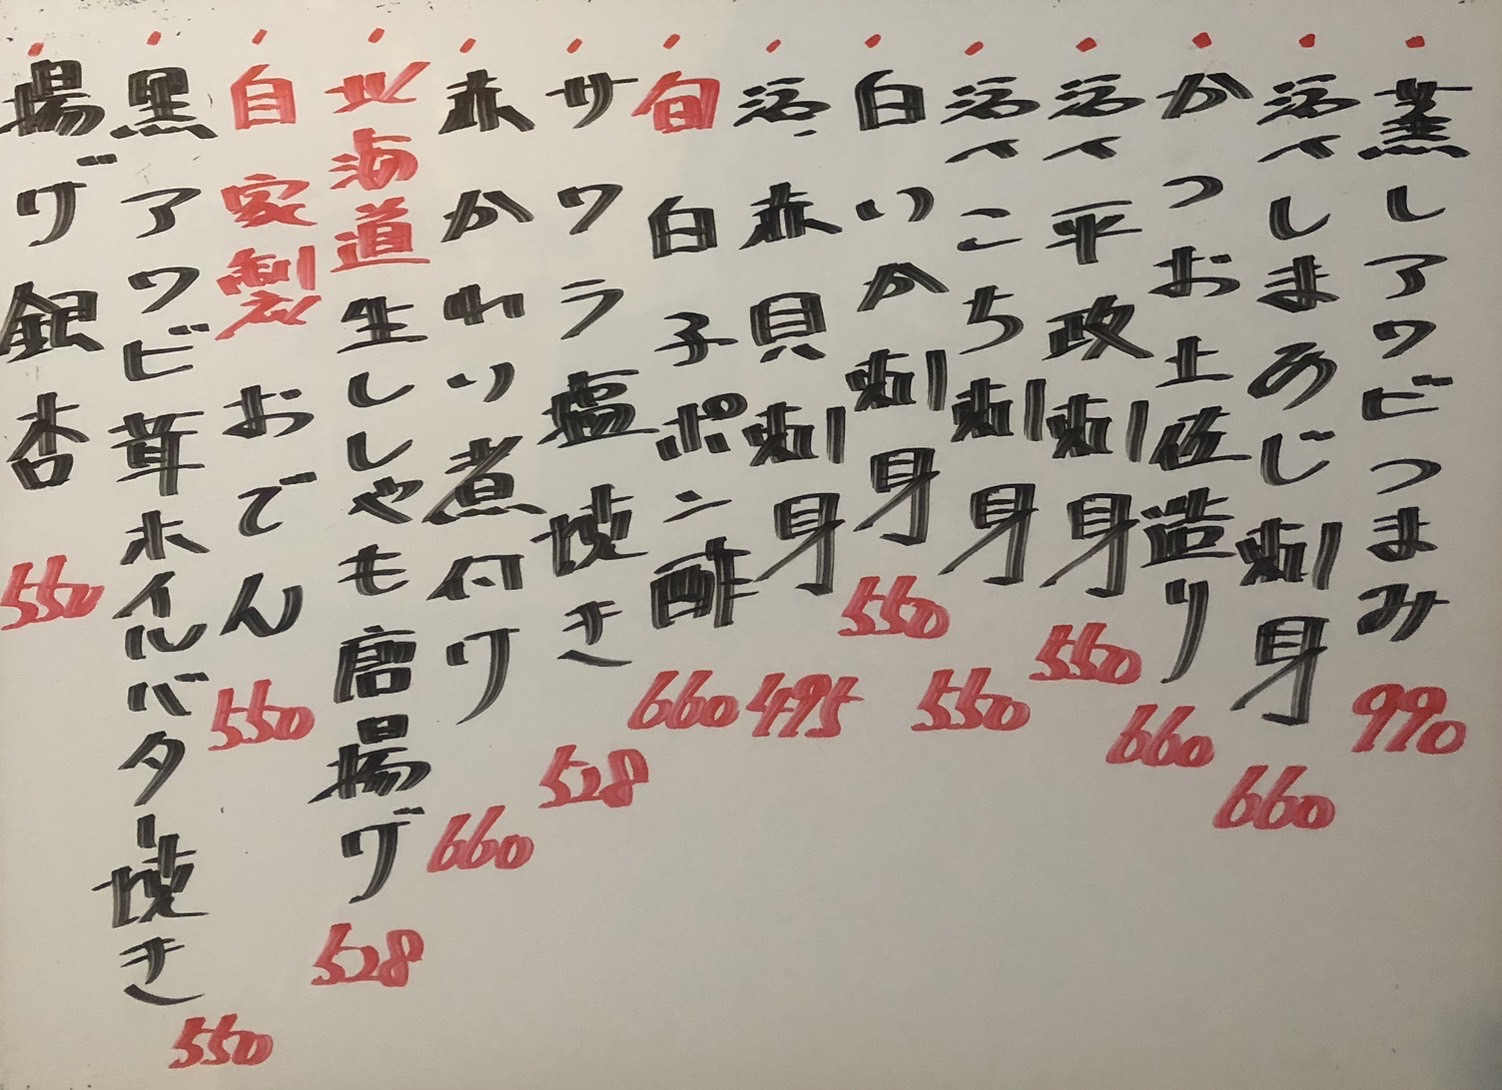 ・蒸しアワビつまみ 990
・活〆しまあじ刺身 660
・かつお土佐造り 660
・活〆平政刺身 550
・活〆こち刺身 550
・白いか刺身 550
・活、赤貝刺身 495
・旬白子ポン酢 660
・サワラ塩焼き 528
・赤かれい煮付け 660
・北海道生ししゃも唐揚げ 528
・自家製おでん 550
・黒アワビ茸ホイルバター焼き 550
・揚げ銀杏 550